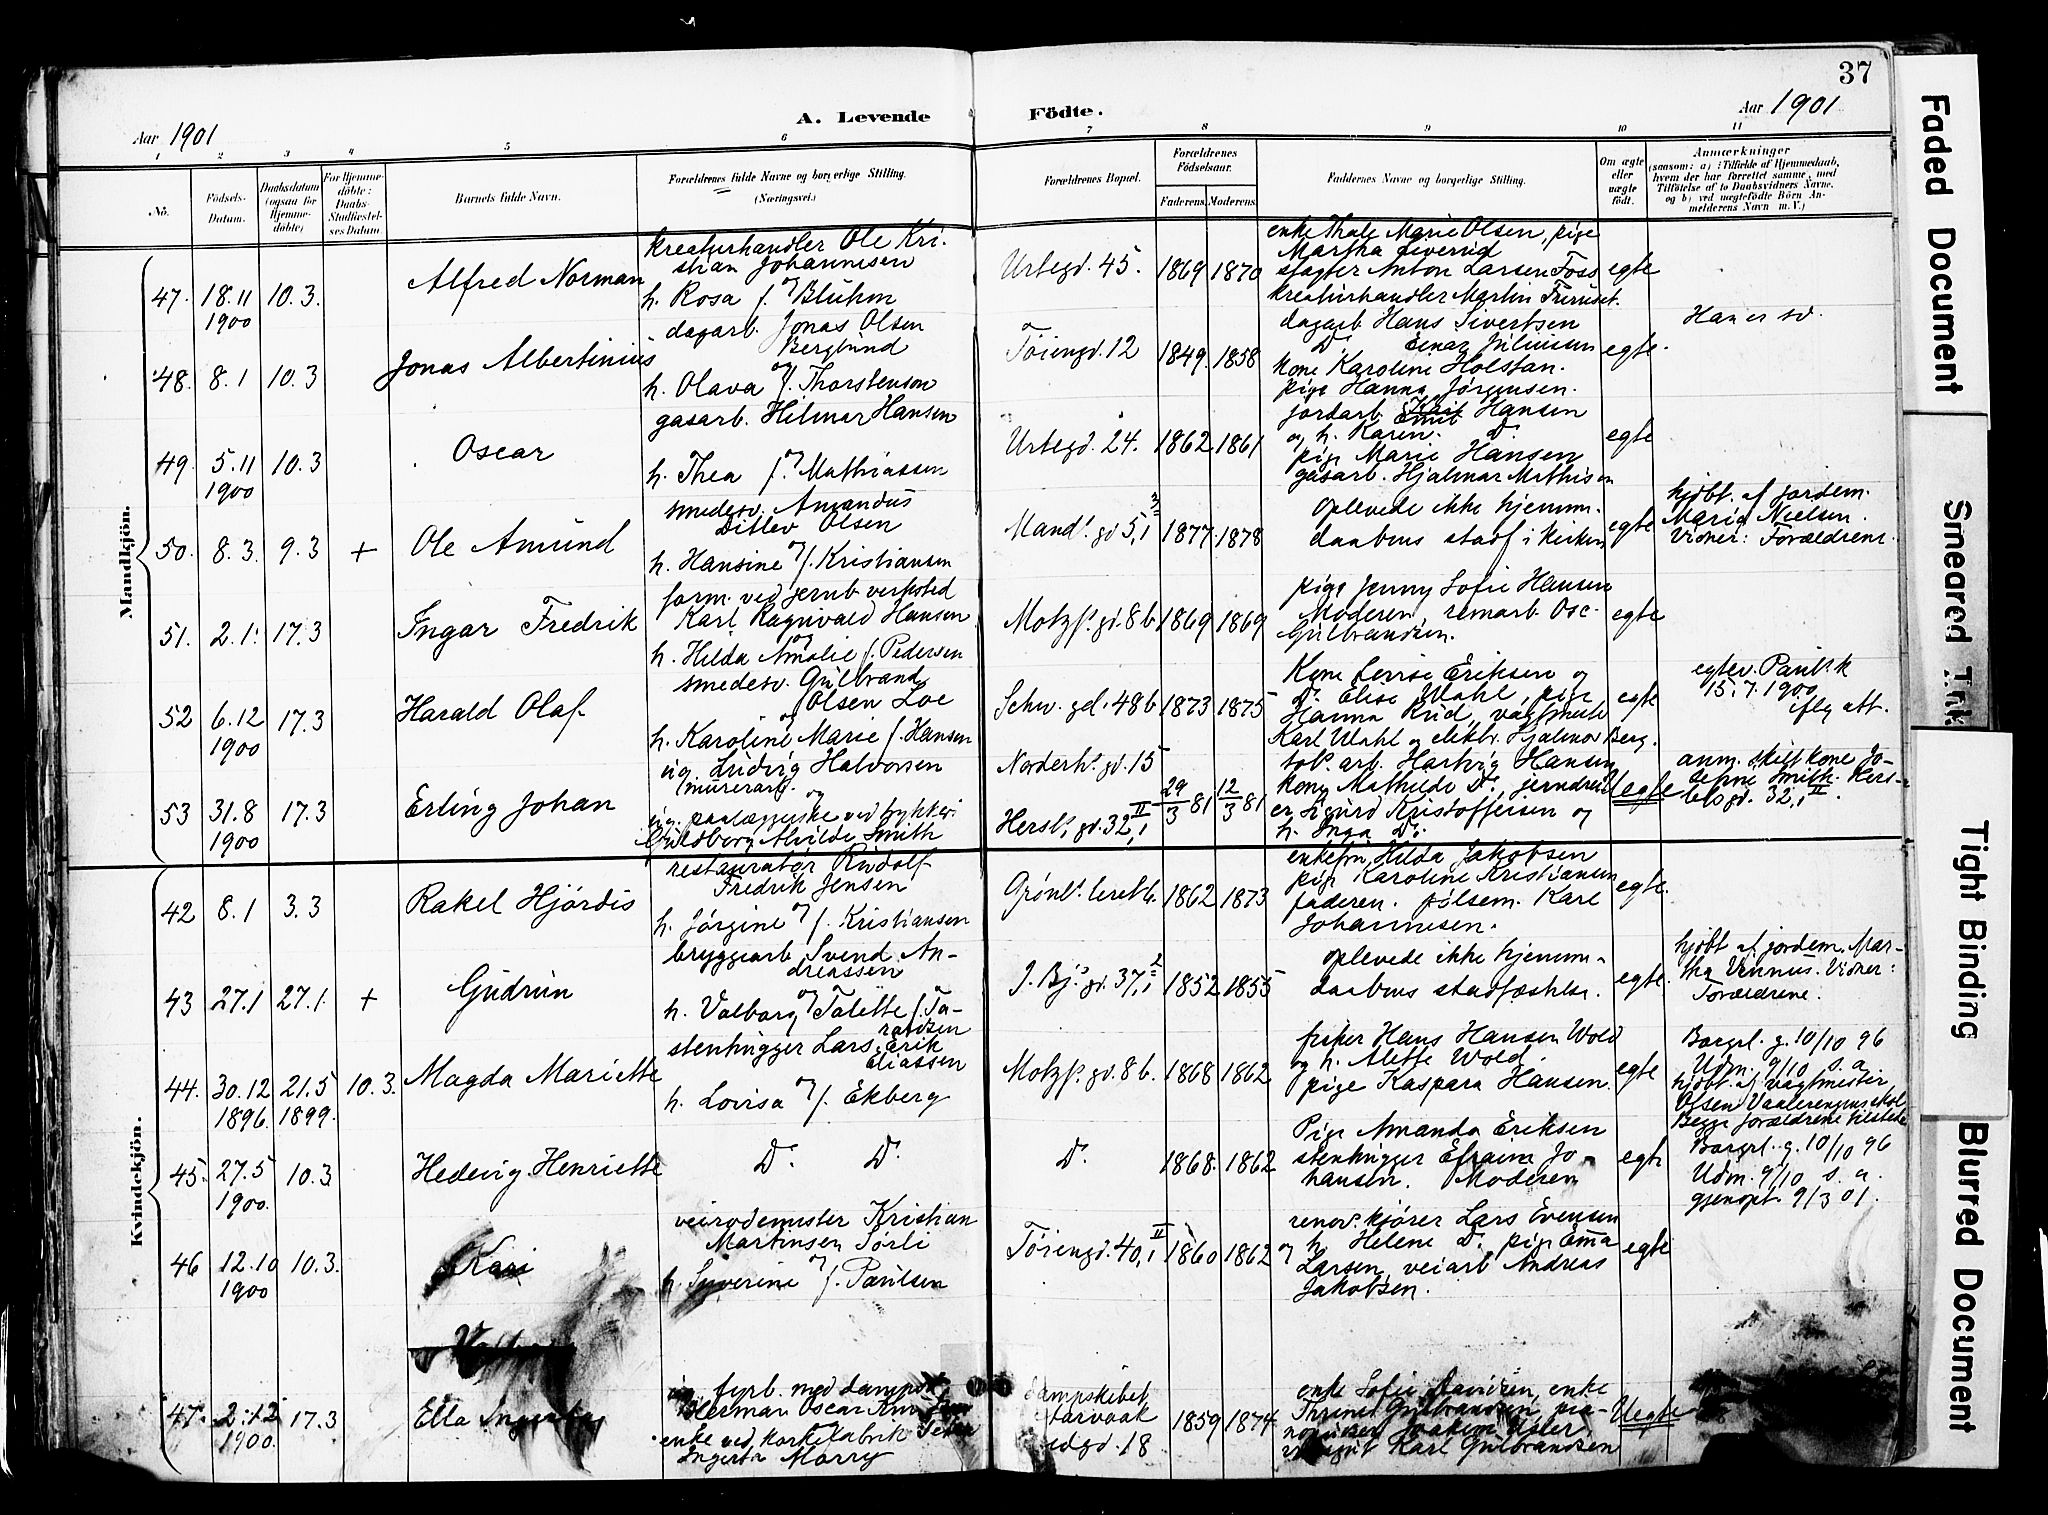 37
Aar 1901
A. Levende Födte.
Aar 1901
1 2 3 4 5 6 7 8 9 10 11
No.
Födsels-Datum.
Daabsdatum (ogsaa for Hjemme-döbte)
For Hjemme-döbte: Daabs-Stadfæstel-ses Datum.
Barnets fulde Navn.
Forældrenes fulde Navne og borgerlige Stilling.
(Næringsvei.)
Forældrenes Bopæl.
Forældrenes Födselsaar.
Faderens. Moderens.
Faddernes Navne og borgerlige Stilling.
Om ægte eller uægte födt.
Anmærkninger
(saasom: a) i Tilfælde af Hjemmedaab, hvem der har forrettet samme, med Tilföielse af to Daabsvidners Navne, og b) ved uægtefödte Börn An-melderens Navn m. V.)
Mandkjön.
47. 18.11 1900 10.3. Alfred Norman
kreaturhandler Ole Kri-
stian Johannesen
og
h. Rosa f. Bluhm
Urtegd. 45. 1869 1870
enke Thale Marie Olsen, pige
Martha Siverud
slagter Anton Larsen Foss
kreaturhandler Martin Furuset.
egte
48. 8.1 10.3 Jonas Albertinius
dagarb. Jonas Olsen
Berglund
og
h. Olava f. Thorstenson
Töiengd. 12 1849. 1858
dagarb Hans Sivertsen
D. Einar Juliussen
kone Karoline Holstan.
pige Hanna Jörgensen.
egte.
Han er sv.
49. 5.11 1900 10.3 Oscar
gasarb. Hilmar Hansen
og
h. Thea f. Mathiassen
Urtegd. 24. 1862. 1861
jordarb Emil Hansen
og h. Karen D.
pige Marie Hansen
gasarb. Hjalmar Mathisen
egte
50. 8.3. 9.3 + Ole Amund
smedesv. Amandus
Ditlev Olsen
h. Hansine og f. Kristiansen
Mand. gd 5,I 1877. 1878
oplevede ikke hjemme-
daabens stadf i kirken
egte
hjdbt. af jordem.
Maria Nielsen.
Vidner: Forældrene.
51. 2.1. 17.3 Ingar Fredrik
form. ved jernb verksted
Karl Ragnvald Hansen
og
h. Hilda Amalie f. Pedersen
Motzf. gd. 8b 1869 1869
pige Jenny Sofie Hansen
Moderen, remarb. Osc.
Gulbrandsen.
egte
52 6.12 1900 17.3 Harald Olaf
smedesv. Gulbrand
Olsen Loe
og
h. Karoline Marie f. Hansen
Schw. gd. 48b 1873 1875
Kone Lovise Eriksen og
D. Elise Wahl, pige
Hanna Rud, vagtmester
Karl Wahl og elektr. Hjalmar Berg.
egte
egtev. Pauls. k
15.7.1900
iflg att.
53 31.8 1900 17.3 Erling Johan
ug. Ludvig Halvorsen
(murerarb. og
ug. paalæggerske ved trykkeri
Guldborg Alvilde Smith
Norderh. gd. 15
Hersl. gd. 32,I II
29/3 81 12/3 81
tob. arb. Hartvig Hansen
kone Mathilde D., jerndrei-
er Sigurd Kristoffersen og
h. Inga D.
Uegte
anm. skilt kone Jo-
sefine Smith. Hers-
lebsgd. 32,I II.
Kvindekjön.
42 8.1 3.3 Rakel Hjördis
restauratör Rudolf
Fredrik Jensen
h. Jörgine og f. Kristiansen
Grönl. leret 6. 1862 1873
enkefru Hilda Jakobsen
pige Karoline Kristiansen
faderen. pölsem. Karl
Johannesen.
egte.
43 27.1 27.1. + Gudrun
bryggearb Svend An-
dreassen
h. Valborg og Talette f. Ta-
raldsen
J. Bj. gd. 37,I 1852 1855
oplevede ikke hjemme-
daabens stadfæstelse.
egte.
hjdbt af jordem. Mar-
tha Vennus. Vidner:
Forældrene.
44. 30.12 1896. 21.5 1899. 10.3. Magda Mariette
stenhugger Lars Erik
Eliassen
h. Lovisa og f. Ekberg
Motzf. gd. 8b. 1868 1862
fisker Hans Hansen Wold
og h. Alette Wold.
pige Kaspara Hansen.
egte
Borgrl. g. 10/10 96
Udm. 9/10 s. a
hjdbt. af vagtmester
Olsen Vaalerengens skol
Begge forældrene tilstede
45. 27.5 1900. 10.3 Hedevig Henriette
D. D.
D. 1868. 1862
Pige Amanda Eriksen
stenhugger Efraim Jo-
hansen. Moderen
egte
Borgrl. g. 10/10 96
Udm. 9/10 s. a.
gjenopt. 9/3 01.
46 12.10 1900 10.3. Kari
veirodemester Kristian
Martinsen Sörli
h. Syverine og f. Paulsen
Töiengd. 40,I II 1860 1862
renov. kjörer Lars Evensen
og h. Helene D. pige Ema
Larsen, veiarb Andreas
Jakobsen.
egte
47. 2.12 1900. 17.3 Ella
ug. fyrb. med dampsk.
Herman Oscar
enke ved Korkefabrik
Ingerta Marry
dampskibet
gd. 18
1859 1874
enke Sofie Davidsen, enke
Thrine Gulbrandsen
Karl Gulbrandsen
Uegte
Faded Document
Smeared Ink
Tight Binding
Blurred Document